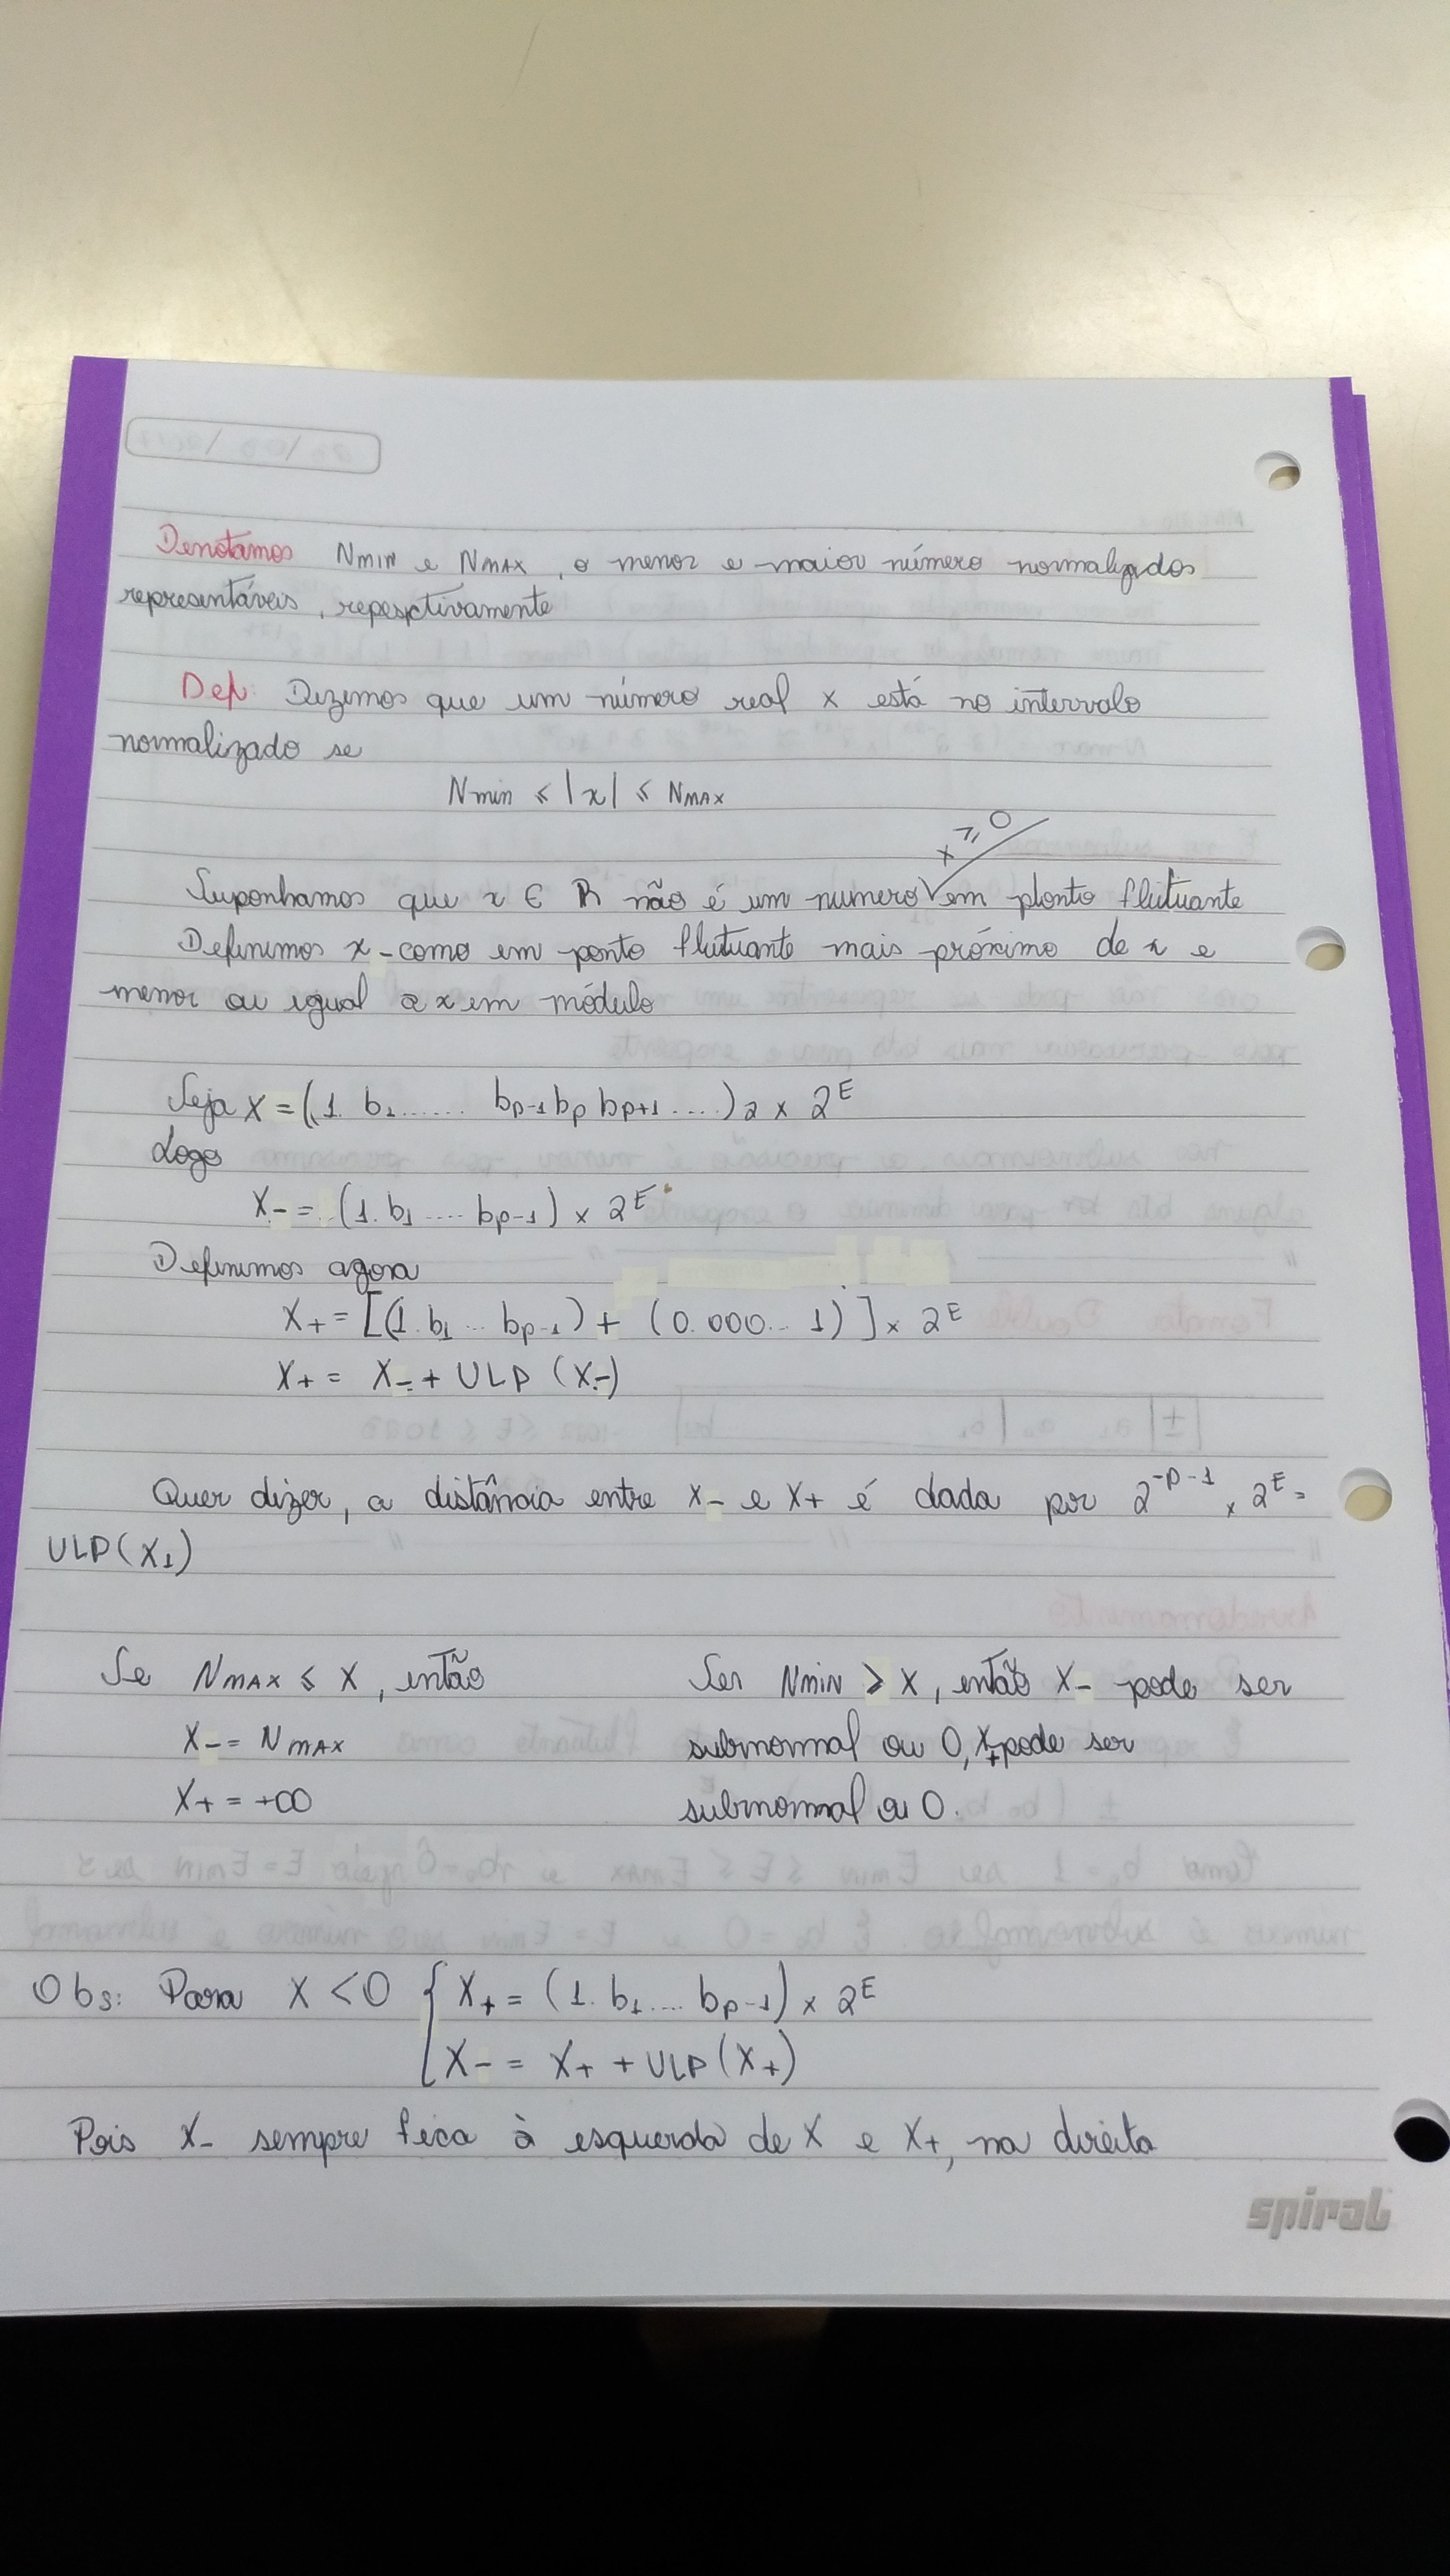 Denotamos NMIN e NMAX, o menor e maior número normalizados
representáveis, repesctivamente
Def: Dizemos que um número real x está no intervalo
normalizado se
Nmin ≤ |x| ≤ NMAX
x ≥ 0
Suponhamos que x ∈ R não é um numero em plonto flutuante
Definimos x- como em ponto flutuante mais próximo de x e
menor ou igual a x em módulo
Seja X = (1. b1...... bp-1 bp bp+1 ....)2 x 2^E
Logo
X- = (1. b1 .... bp-1) x 2^E
Definimos agora
X+ = [(1. b1 ... bp-1) + (0.000... 1)] x 2^E
X+ = X- + ULP (X-)
Quer dizer, a distância entre X- e X+ é dada por 2^-p-1 x 2^E =
ULP(X1)
Se NMAX ≤ X, então
X- = NMAX
X+ = +∞
Ser Nmin > X, então X- pode ser
subnormal ou 0, X+ pode ser
subnormal ou 0.
Obs: Para X < 0 { X+ = (1. b1.... bp-1) x 2^E
X- = X+ + ULP(X+)
Pois X- sempre fica à esquerda de X e X+, na direita
spiral